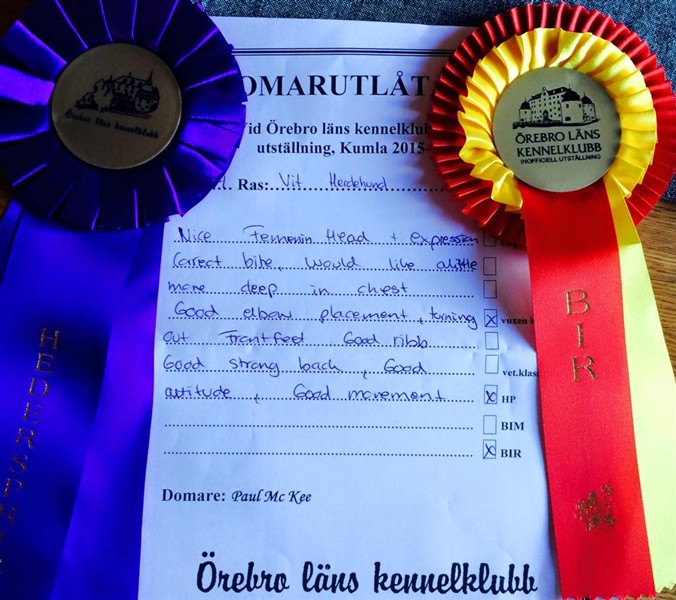 OMARUTLÅT
Vid Örebro läns kennelklu
utställning, Kumla 2015-
Ras: Vit Herdehund
Nice Feminin Head + expression
Corect bite, would like alittle
more deep in chest
Good elbow placement, turning
vuxen k
out Frontfeet Good ribb
Good strong back, Good
vet.klas
attitude, Good movement
HP
BIM
BIR
Domare: Paul Mc Kee
Örebro läns kennelklubb
Örebro läns kennelklubb
HEDERSPR
ÖREBRO LÄNS
KENNELKLUBB
INOFFICIELL UTSTÄLLNING
BIR